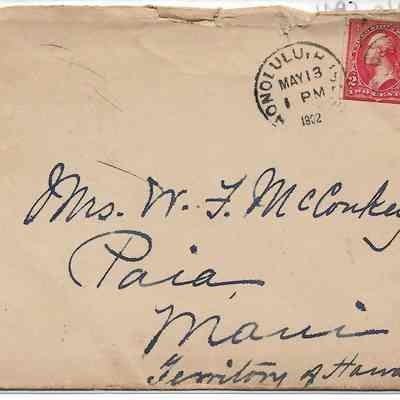 HONOLULU, H
MAY 13
1 PM
1902
2 2
TWO CENTS
Mrs. W. F. McConkey
Paia,
Maui
Territory of Hawa